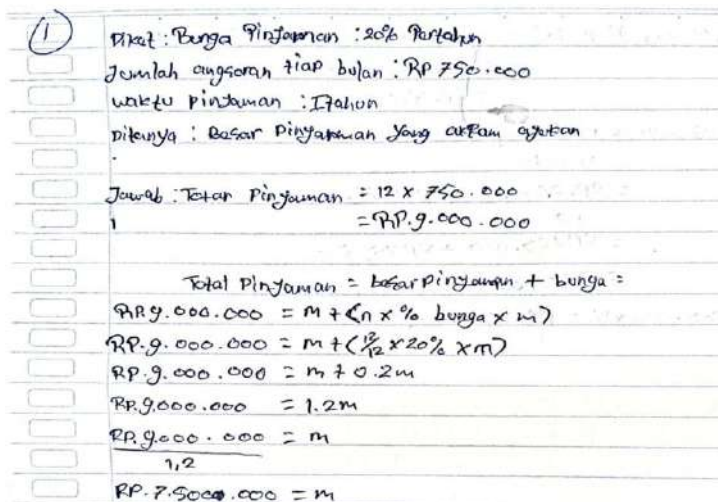 1
Diket : Bunga Pinjaman : 20% Pertahun
Jumlah angsoran tiap bulan : RP 750.000
waktu pinjaman : 1 tahun
Ditanya : Besar Pinjaman yang
Jawab : Total Pinjaman = 12 x 750.000
= RP.9.000.000
Total Pinjaman = besar pinjaman + bunga =
RP.9.000.000 = m + (n x % bunga x m)
RP.9.000.000 = m + (12/12 x 20% x m)
RP.9.000.000 = m + 0.2m
RP.9.000.000 = 1.2m
RP.9.000.000 = m
1,2
RP.7.5000.000 = m